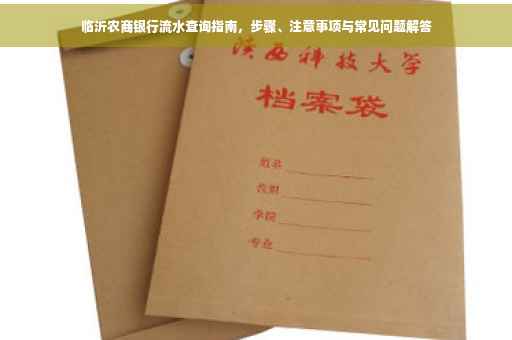 临沂农商银行流水查询指南，步骤、注意事项与常见问题解答
陕西科技大学
档案袋
姓名
学院
专业